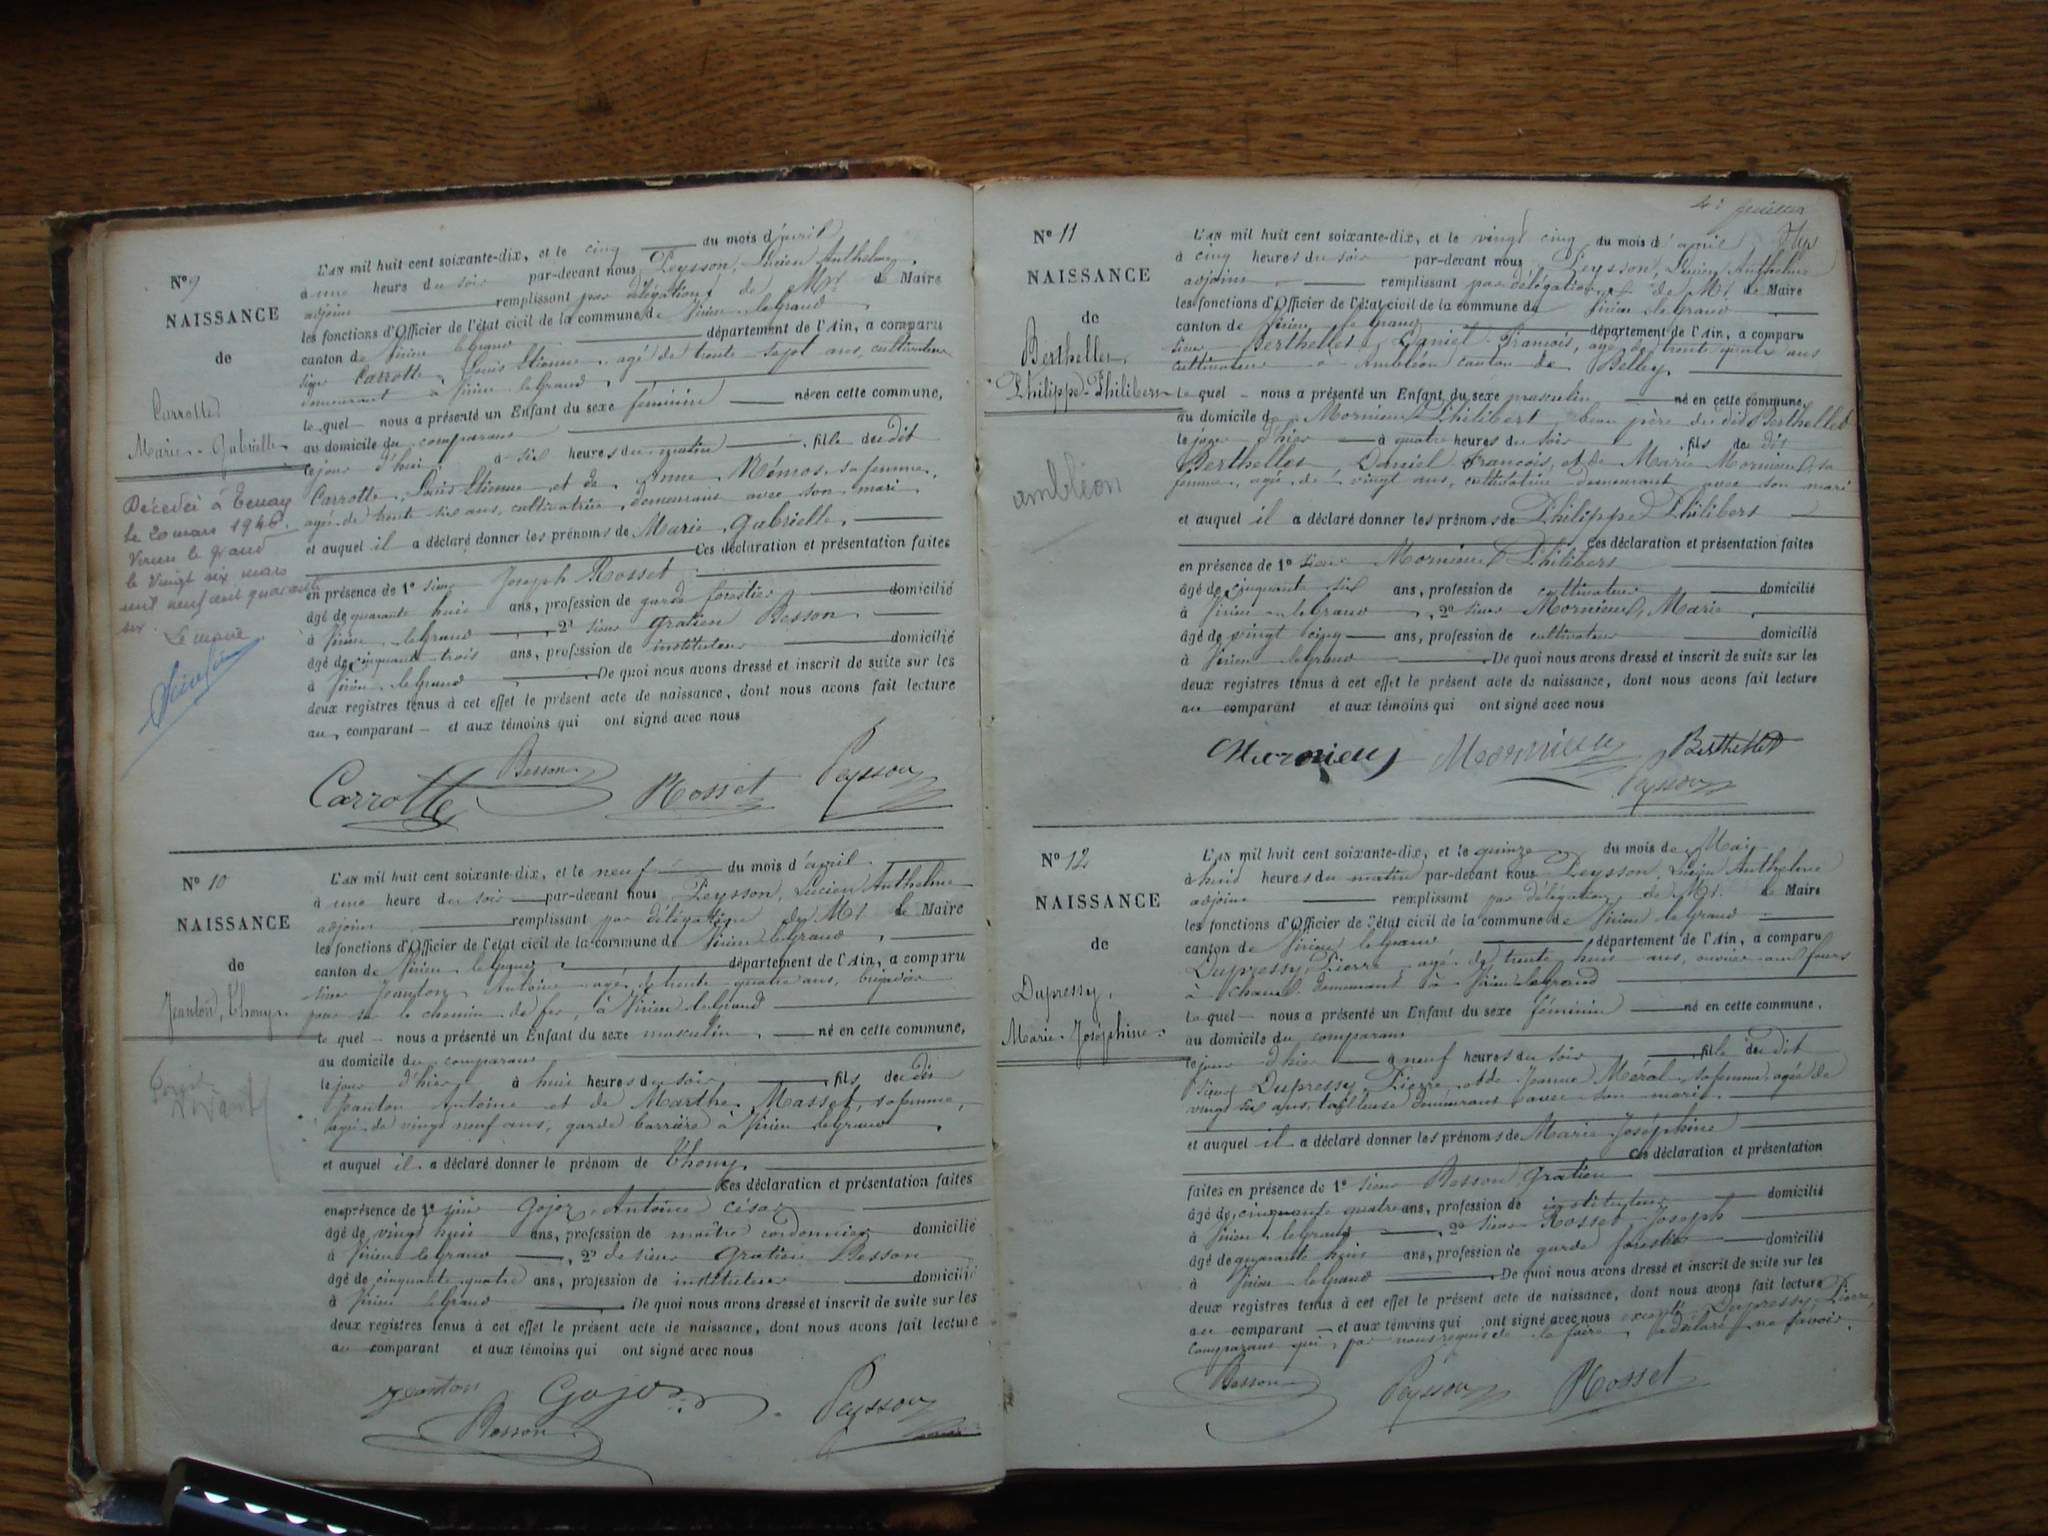 Nº 9
NAISSANCE
de
Carrotte
Marie-Gabrielle
Décédée à Tenay
le 20 mars 1946.
Virieu le grand
le Vingt six mars
mil neuf cent quarante
six.
Le maire
L'AN mil huit cent soixante-dix, et le cinq du mois d'avril
à une heure du soir par-devant nous Peysson, Lucien Anthelme,
adjoint remplissant par délégation de Mr. le Maire
les fonctions d'Officier de l'état civil de la commune de Virieu-le-Grand
canton de Virieu le Grand département de l'Ain, a comparu
sieur Carrotte, Louis Etienne, agé de trente-sept ans, cultivateur
demeurant à Virieu le Grand,
lequel nous a présenté un Enfant du sexe féminin né en cette commune,
au domicile du comparant
le jour d'hui à six heures du matin, fille du dit
Carrotte, Louis Etienne et de Anne Mémos, sa femme,
agée de trente six ans, cultivatrice, demeurant avec son mari
et auquel il a déclaré donner les prénoms de Marie, Gabrielle,
Ces déclaration et présentation faites
en présence de 1º sieur Joseph Rosset
âgé de quarante huit ans, profession de garde forestier domicilié
à Virieu-le-Grand, 2º sieur Gratien Besson
âgé de cinquante trois ans, profession de instituteur domicilié
à Virieu-le-Grand. De quoi nous avons dressé et inscrit de suite sur les
deux registres tenus à cet effet le présent acte de naissance, dont nous avons fait lecture
au comparant et aux témoins qui ont signé avec nous
Besson
Carrotte Rosset Peysson
Nº 10
NAISSANCE
de
Jeanton, Thony
L'AN mil huit cent soixante-dix, et le neuf du mois d'avril
à une heure du soir par-devant nous Peysson, Lucien Anthelme
adjoint remplissant par délégation de Mr le Maire
les fonctions d'Officier de l'état civil de la commune de Virieu le Grand,
canton de Virieu le Grand département de l'Ain, a comparu
sieur Jeanton Antoine agé de trente quatre ans, brigadier
poseur sur le chemin de fer, à Virieu le Grand
lequel nous a présenté un Enfant du sexe masculin, né en cette commune,
au domicile du comparant
le jour d'hier à huit heures du soir, fils du dit
Jeanton Antoine et de Marthe Masset, sa femme,
agée de vingt neuf ans, garde barrière à Virieu le Grand
et auquel il a déclaré donner le prénom de Thony
Ces déclaration et présentation faites
en présence de 1º sieur Gojoz, Antoine César
âgé de vingt huit ans, profession de maître cordonnier domicilié
à Virieu le Grand, 2º de sieur Gratien Besson
âgé de cinquante quatre ans, profession de instituteur domicilié
à Virieu le Grand. De quoi nous avons dressé et inscrit de suite sur les
deux registres tenus à cet effet le présent acte de naissance, dont nous avons fait lecture
au comparant et aux témoins qui ont signé avec nous
Jeanton Gojoz Peysson
Besson
4e feuillet
Nº 11
NAISSANCE
de
Berthellet
Philippe-Philibert
ambléon
L'AN mil huit cent soixante-dix, et le vingt cinq du mois d'avril
à cinq heures du soir par-devant nous Peysson, Lucien Anthelme
adjoint remplissant par délégation de Mr. le Maire
les fonctions d'Officier de l'état civil de la commune de Virieu le Grand
canton de Virieu le Grand département de l'Ain, a comparu
sieur Berthellet, Daniel François, agé de trente quatre ans
cultivateur à Ambléon canton de Belley
lequel nous a présenté un Enfant du sexe masculin né en cette commune,
au domicile de Mornieux Philibert beau père du dit Berthellet
le jour d'hier à quatre heures du soir, fils du dit
Berthellet, Daniel François, et de Marie Mornieux, sa
femme, agée de vingt ans, cultivatrice demeurant avec son mari
et auquel il a déclaré donner les prénoms de Philippe Philibert
Ces déclaration et présentation faites
en présence de 1º sieur Mornieux Philibert
âgé de cinquante six ans, profession de cultivateur domicilié
à Virieu-le-Grand, 2º sieur Mornieux, Marie
âgé de vingt cinq ans, profession de cultivateur domicilié
à Virieu le Grand. De quoi nous avons dressé et inscrit de suite sur les
deux registres tenus à cet effet le présent acte de naissance, dont nous avons fait lecture
au comparant et aux témoins qui ont signé avec nous
Mornieux Mornieux Berthellet
Peysson
Nº 12
NAISSANCE
de
Dupressy,
Marie-Joséphine
L'AN mil huit cent soixante-dix, et le quinze du mois de Mai
à huit heures du matin par-devant nous Peysson, Lucien Anthelme
adjoint remplissant par délégation de Mr. le Maire
les fonctions d'Officier de l'état civil de la commune de Virieu le Grand
canton de Virieu le Grand département de l'Ain, a comparu
Dupressy, Pierre, agé de trente huit ans, ouvrier aux fours
à chaux demeurant à Virieu le Grand
lequel nous a présenté un Enfant du sexe féminin né en cette commune,
au domicile du comparant
le jour d'hier à neuf heures du soir, fille du dit
sieur Dupressy Pierre et de Jeanne Méral, sa femme, agée de
vingt six ans, tailleuse demeurant avec son mari.
et auquel il a déclaré donner les prénoms de Marie Joséphine
Ces déclaration et présentation
faites en présence de 1º sieur Besson Gratien
âgé de cinquante quatre ans, profession de instituteur domicilié
à Virieu le Grand, 2º sieur Rosset Joseph
âgé de quarante huit ans, profession de garde forestier domicilié
à Virieu le Grand. De quoi nous avons dressé et inscrit de suite sur les
deux registres tenus à cet effet le présent acte de naissance, dont nous avons fait lecture
au comparant et aux témoins qui ont signé avec nous excepté Dupressy, Pierre,
comparant qui, par nous requis de le faire, a déclaré ne savoir.
Besson Peysson Rosset